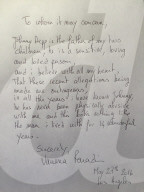 To whom it may concern,
Johnny Depp is the father of my two
children, he is a sensitive, loving
and loved person
and I believe with all my heart
that these recent allegations being
made are outrageous.
in all the years I have known Johnny,
he has never been physically abusive
with me and this looks nothing like
the man I lived with for 14 wonderful
years.
Sincerely,
Vanessa Paradis
May 29th 2016
Los Angeles